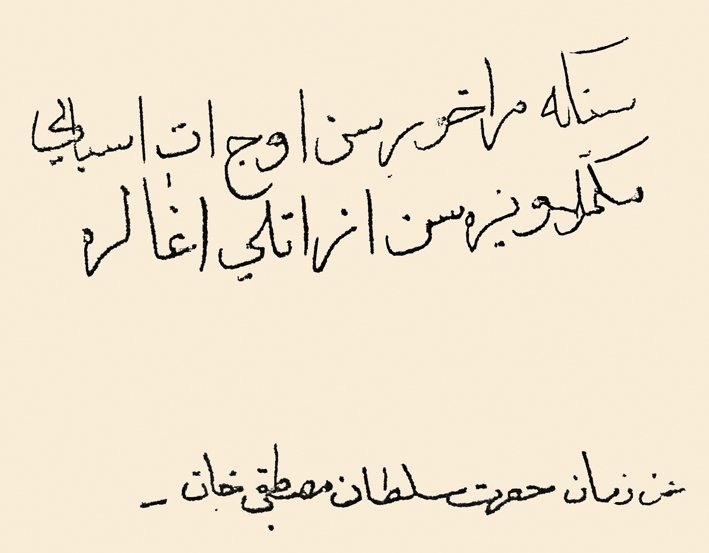 سنكه مراخورسن اوج ات اسبابي
مكملا ويره سن اتلي اغالره
زمان حضرت سلطان مصطفى خان